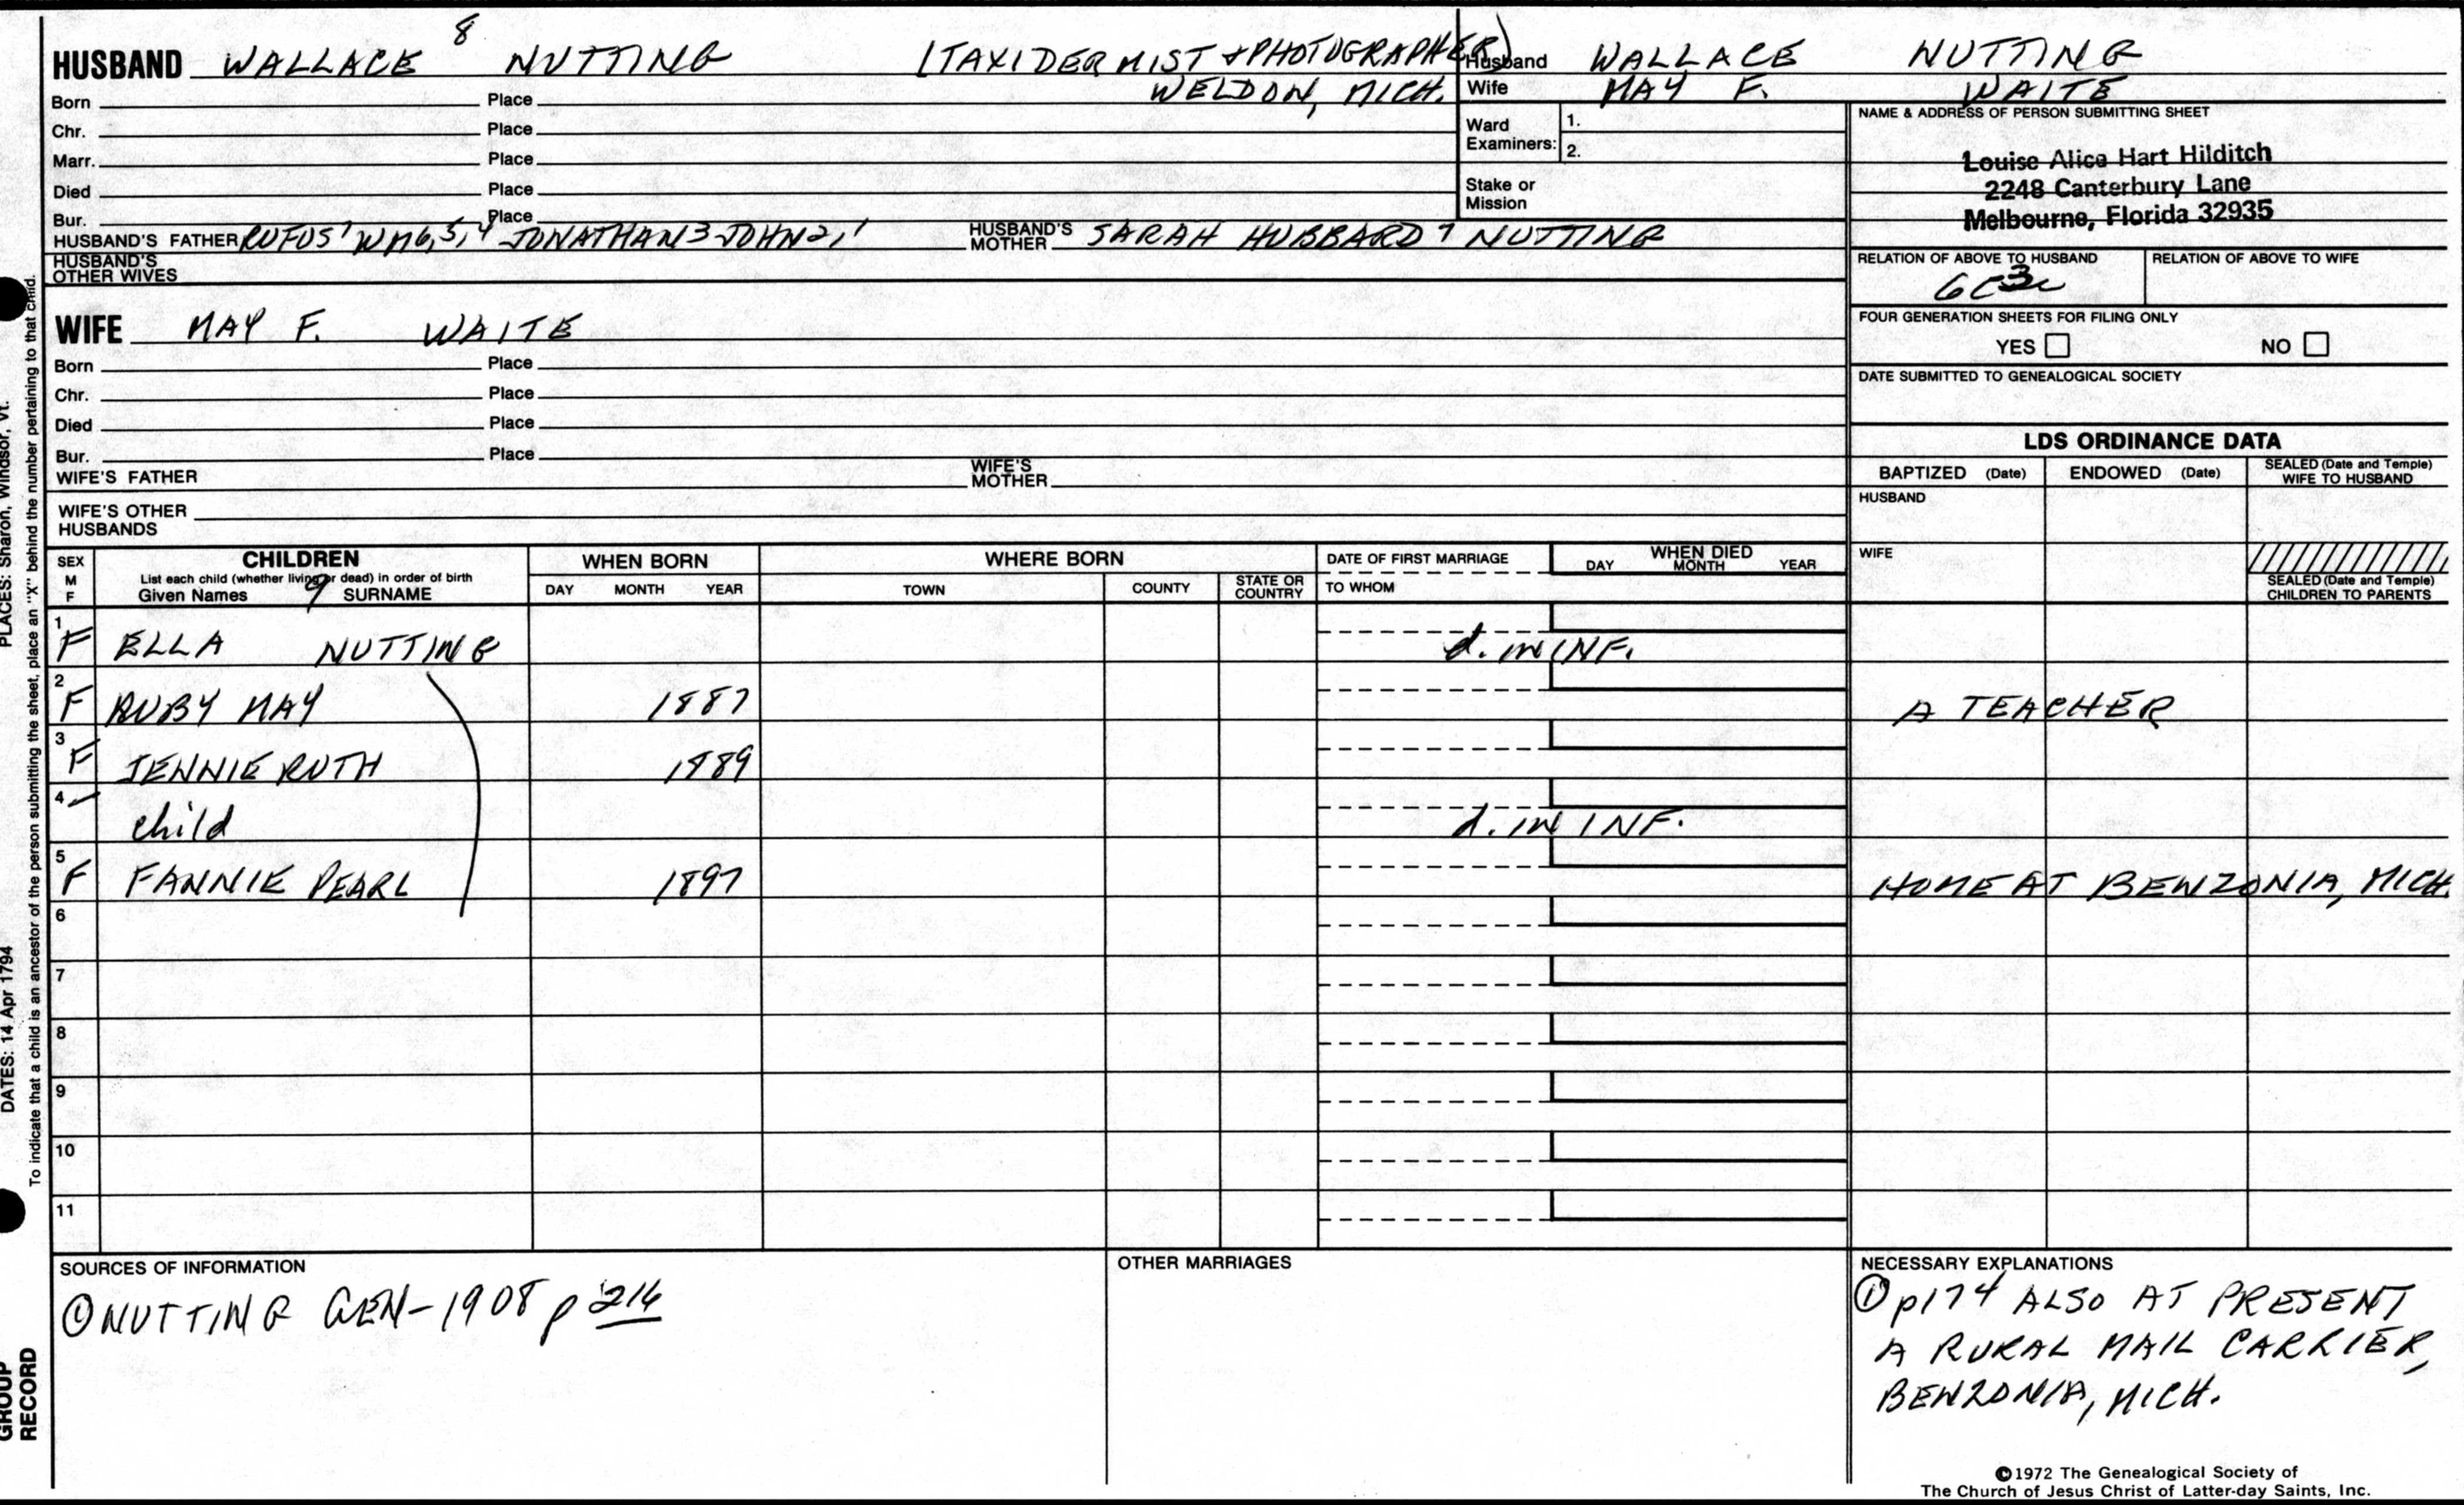 8
HUSBAND WALLACE NUTTING (TAXIDERMIST & PHOTOGRAPHER)
WELDON, MICH.
Born Place
Chr. Place
Marr. Place
Died Place
Bur. Place
HUSBAND'S FATHER RUFUS7 WM6,5,4 JONATHAN3 JOHN2,1 HUSBAND'S MOTHER SARAH HUBBARD7 NUTTING
HUSBAND'S OTHER WIVES
WIFE MAY F. WAITE
Born Place
Chr. Place
Died Place
Bur. Place
WIFE'S FATHER WIFE'S MOTHER
WIFE'S OTHER HUSBANDS
Husband WALLACE NUTTING
Wife MAY F. WAITE
Ward Examiners: 1.
2.
Stake or Mission
NAME & ADDRESS OF PERSON SUBMITTING SHEET
Louise Alice Hart Hilditch
2248 Canterbury Lane
Melbourne, Florida 32935
RELATION OF ABOVE TO HUSBAND RELATION OF ABOVE TO WIFE
FOUR GENERATION SHEETS FOR FILING ONLY
YES NO
DATE SUBMITTED TO GENEALOGICAL SOCIETY
LDS ORDINANCE DATA
BAPTIZED (Date) ENDOWED (Date) SEALED (Date and Temple) WIFE TO HUSBAND
HUSBAND
WIFE
SEALED (Date and Temple) CHILDREN TO PARENTS
SEX M F CHILDREN WHEN BORN WHERE BORN DATE OF FIRST MARRIAGE WHEN DIED
List each child (whether living or dead) in order of birth
Given Names 9 SURNAME DAY MONTH YEAR TOWN COUNTY STATE OR COUNTRY TO WHOM DAY MONTH YEAR
1 F ELLA NUTTING d. IN INF.
2 F RUBY MAY 1887 A TEACHER
3 F JENNIE RUTH 1889
4 child d. IN INF.
5 F FANNIE PEARL 1897 HOME AT BENZONIA, MICH.
6
7
8
9
10
11
SOURCES OF INFORMATION
① NUTTING GEN-1908 p 216
OTHER MARRIAGES
NECESSARY EXPLANATIONS
① p174 ALSO AT PRESENT
A RURAL MAIL CARRIER,
BENZONIA, MICH.
©1972 The Genealogical Society of
The Church of Jesus Christ of Latter-day Saints, Inc.
PLACES: Sharon, Windsor, Vt.
DATES: 14 Apr 1794
To indicate that a child is an ancestor of the person submitting the sheet, place an "X" behind the number pertaining to that child.
GROUP
RECORD